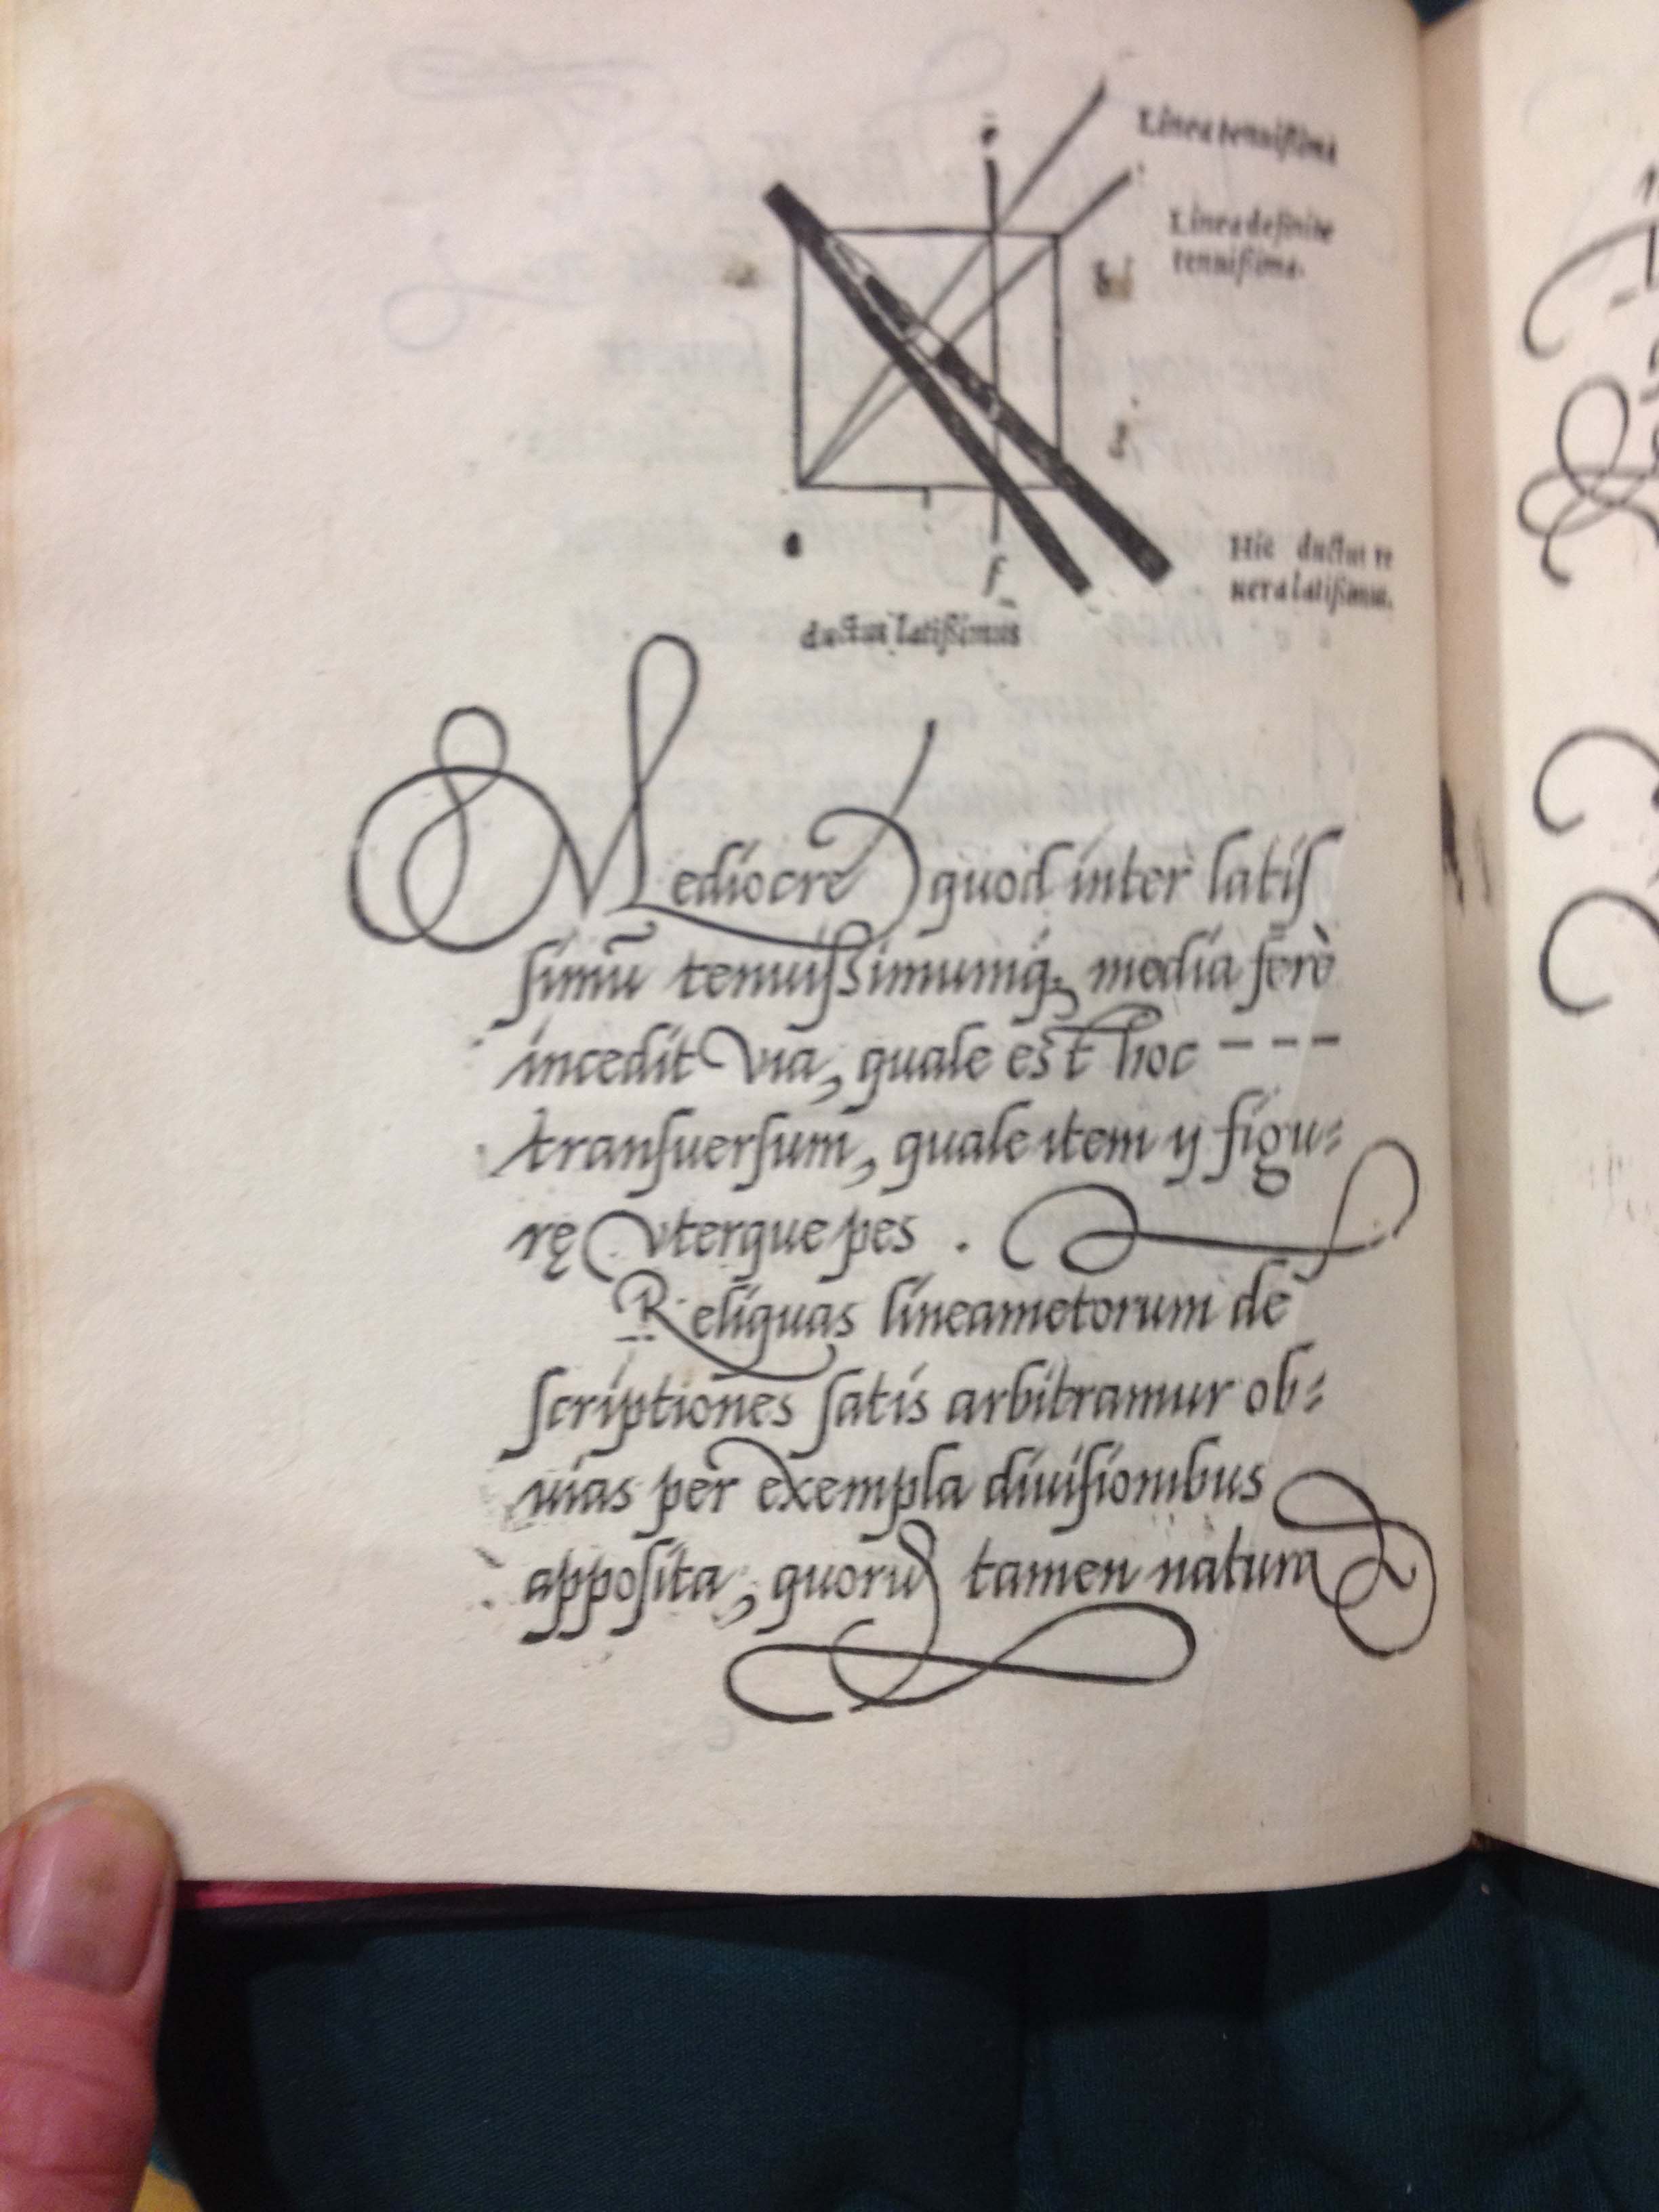 Linea tenuißima
Linea definite
tenuißima.
b
g
Hic ductus re
uera latißimus.
e
f
ductus latißimus
Mediocre quod inter latiſ
ſimū tenuiſsimumq; media ferè
incedit via, quale est hoc - - -
tranſuerſum, quale item y figu=
rę vterque pes .
Reliquas lineametorum de
ſcriptiones ſatis arbitramur ob=
uias per exempla diuiſionibus
appoſita, quorū tamen natura